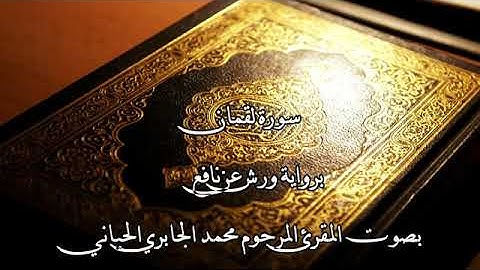 سورة لقمان
برواية ورش عن نافع
بصوت المقرئ المرحوم محمد الجابري الحياني